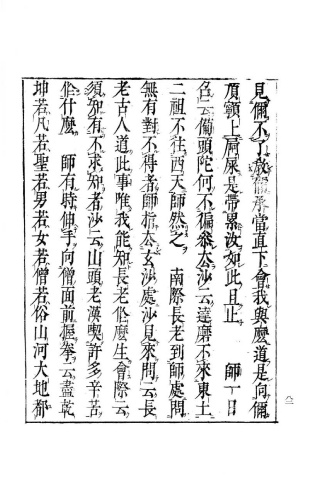 見儞不了敎儞承當直下會我與麼道是向儞
頂上屙屎是帶累汝如此且止　師一日
召云備頭陀何不徧參去沙云達磨不來東土
二祖不往西天師然之　南際長老到師處問
無有對不得者師指去玄沙處沙見來問云長
老古人道此事唯我能知長老作麼生會際云
須知有不求知者沙云山頭老漢喫許多辛苦
作什麼　師有時伸手向僧面前握拳云盡乾
坤若凡若聖若男若女若僧若俗山河大地都